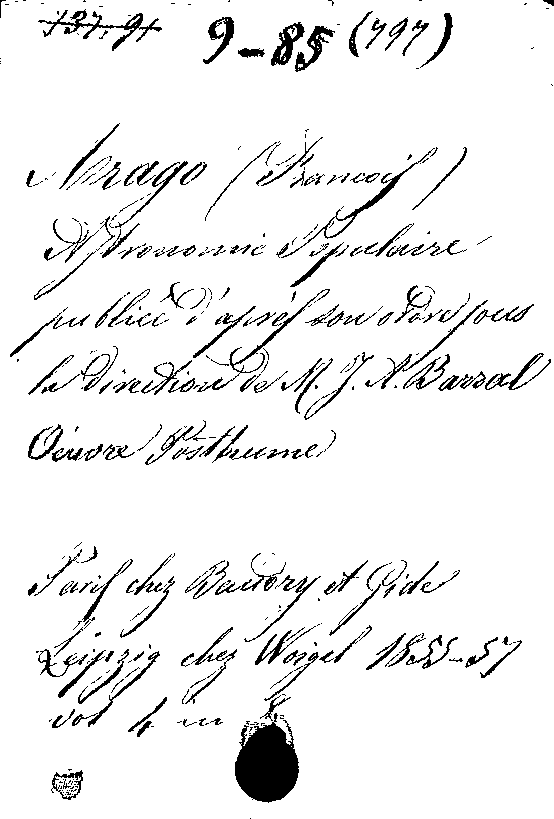 137.91 9-85 (797)
Arago (Francois)
Astronomie Populaire
publieé d'aprés son ordre sous
la direction de M. J. A. Barral
Oeuvre Posthume
Paris chez Baudry et Gide
Leipzig chez Weigel 1855-57
vol 4 in 8